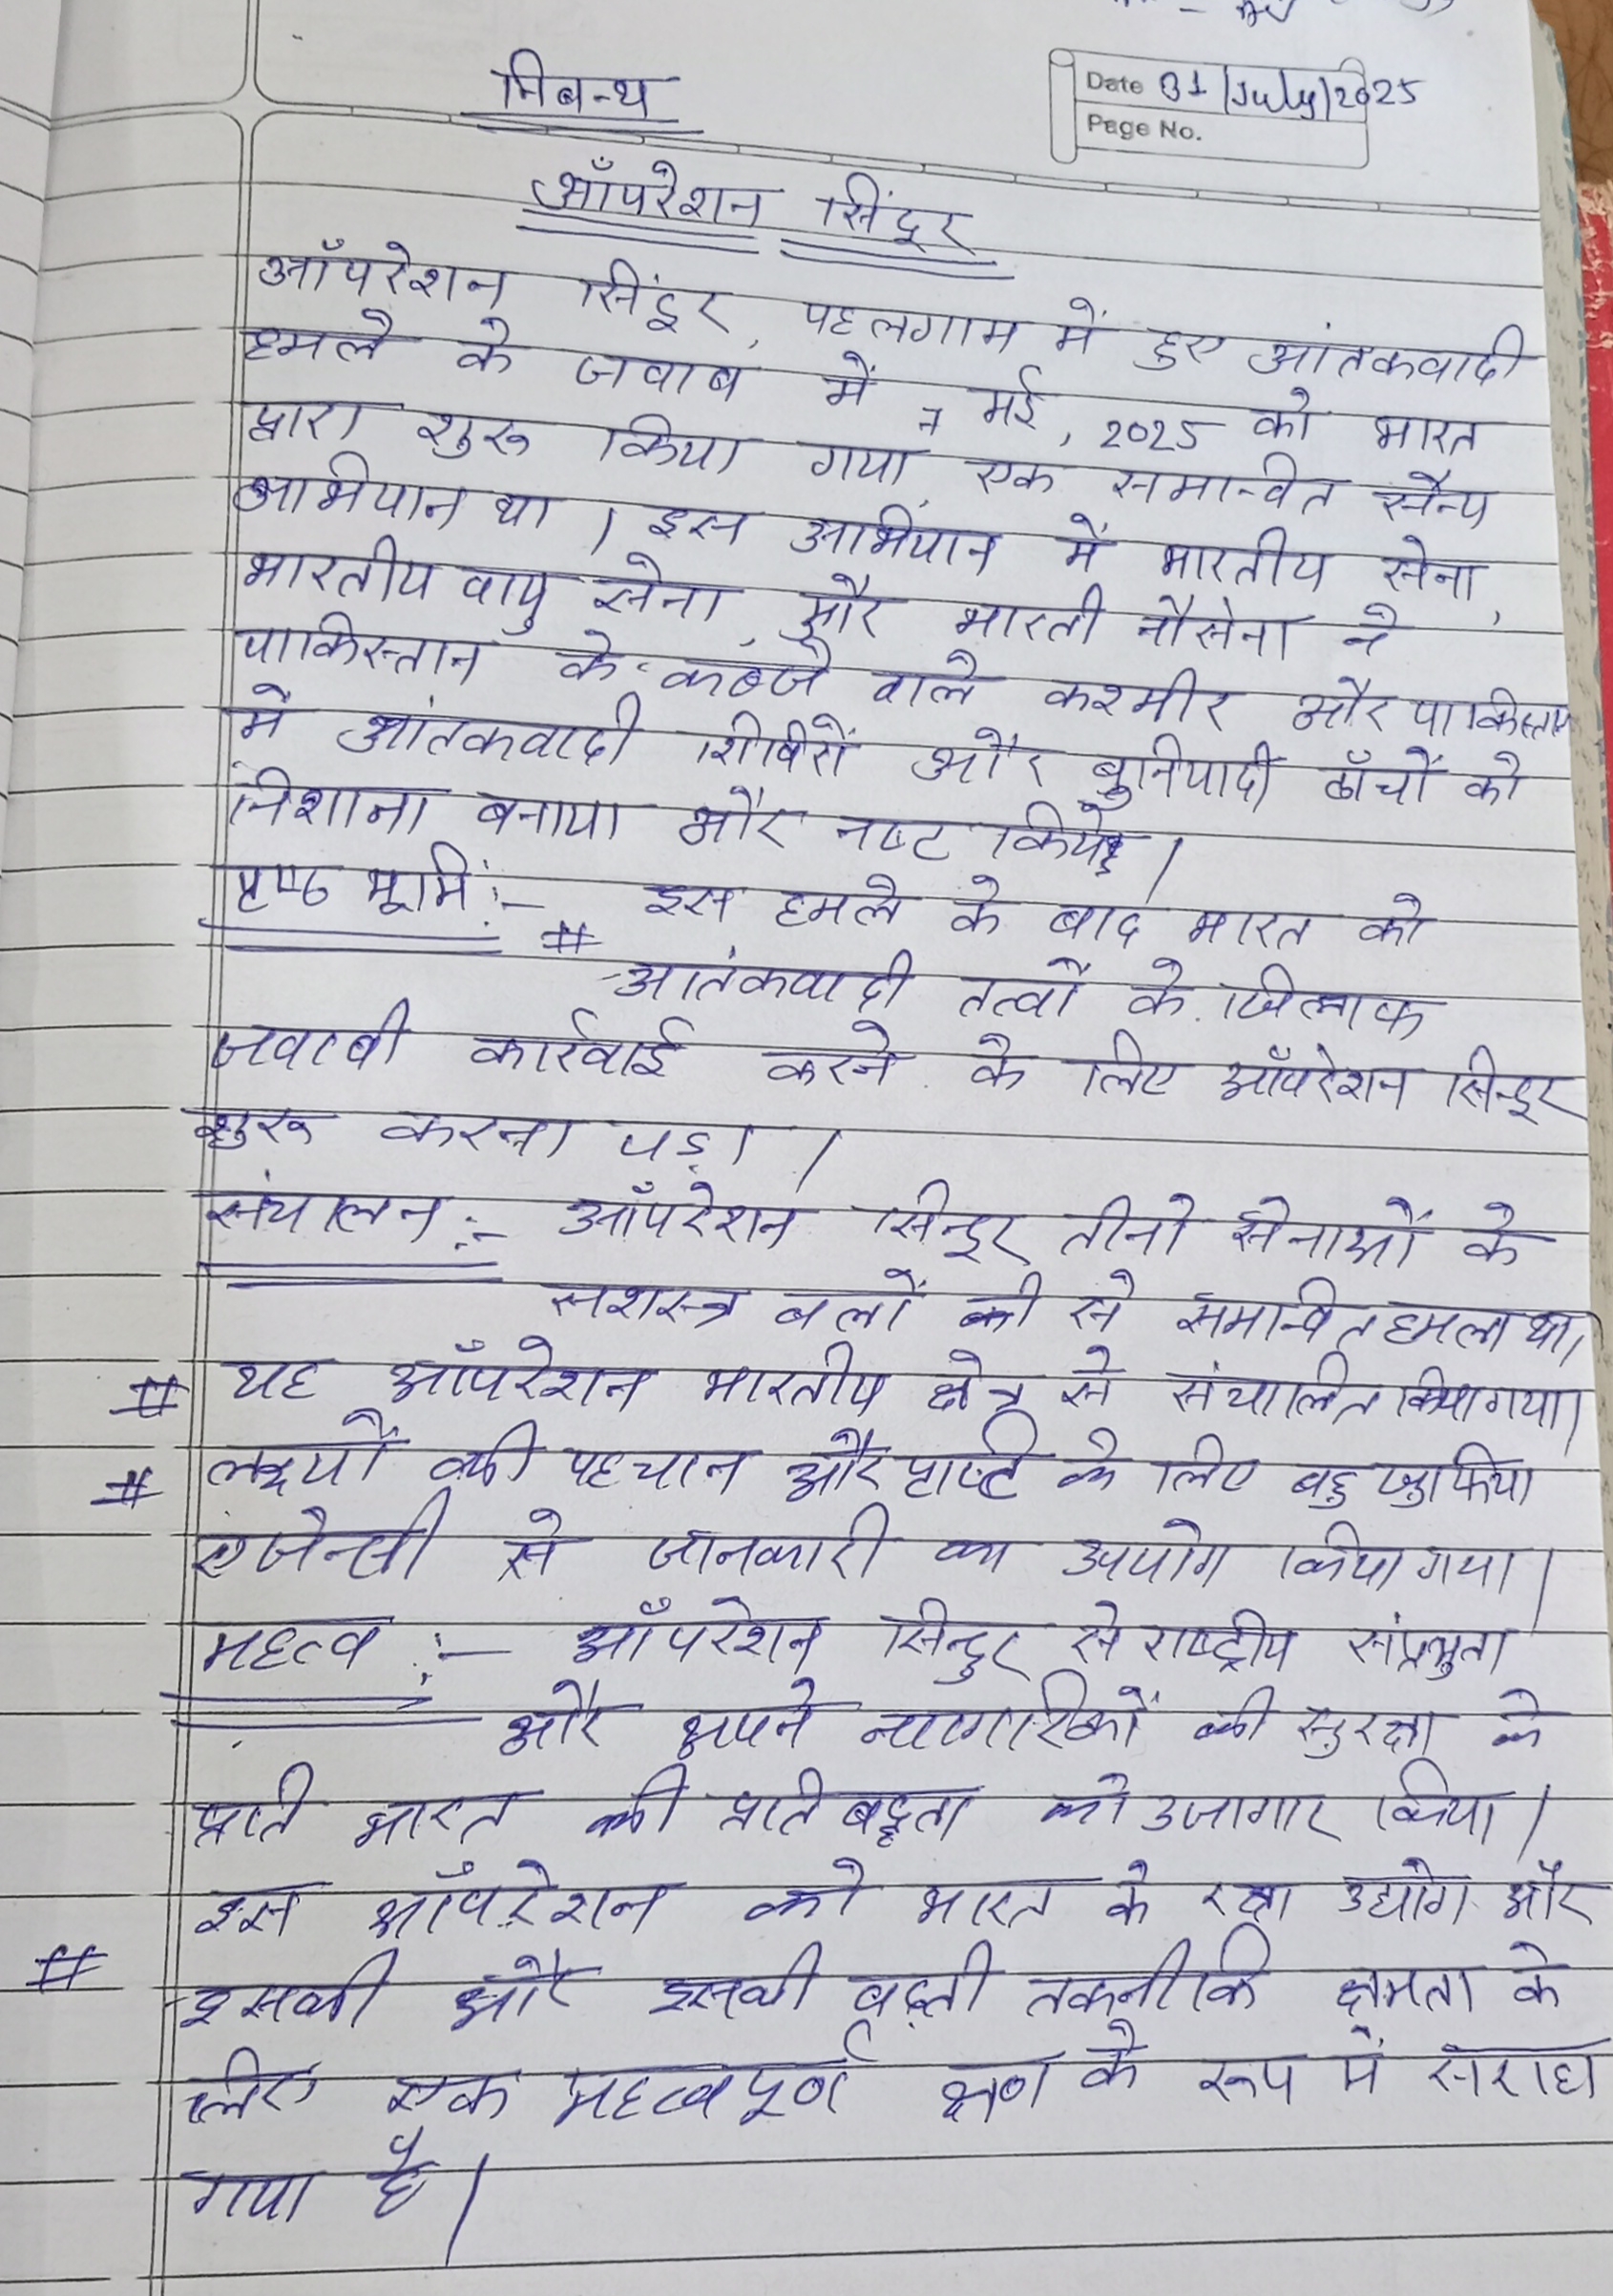 Date 01/July/2025
Page No.
निबन्ध
ऑपरेशन सिंदूर
ऑपरेशन सिंदूर, पहलगाम में हुए आंतकवादी
हमले के जवाब में 7 मई, 2025 को भारत
द्वारा शुरू किया गया, एक समान्वित सैन्य
अभियान था। इस अभियान में भारतीय सेना,
भारतीय वायु सेना, और भारती नौसेना ने
पाकिस्तान के कब्जे वाले कश्मीर और पाकिस्तान
में आंतकवादी शिविरों और बुनियादी ढाँचों को
निशाना बनाया और नष्ट किये।
पृष्ठ भूमि :- इस हमले के बाद भारत को
# आतंकवादी तत्वों के खिलाफ
जवाबी कार्रवाई करने के लिए ऑपरेशन सिन्दूर
शुरू करना पड़ा।
संचालन :- ऑपरेशन सिन्दूर तीनो सेनाओं के
सशस्त्र बलों की से समान्वित हमला था।
# यह ऑपरेशन भारतीय क्षेत्र से संचालित किया गया।
# लक्ष्यों की पहचान और पुष्टि के लिए बहु खुफिया
एजेन्सी से जानकारी का उपयोग किया गया।
महत्व :- ऑपरेशन सिन्दुर से राष्ट्रीय संप्रभुता
और अपने नागरिकों की सुरक्षा के
प्रति भारत की प्रतिबद्धता को उजागार किया।
इस ऑपरेशन को भारत के रक्षा उद्योग और
# इसकी और इसकी बढ़ती तकनीकि क्षमता के
लिए एक महत्वपूर्ण क्षण के रूप में सराहा
गया है।